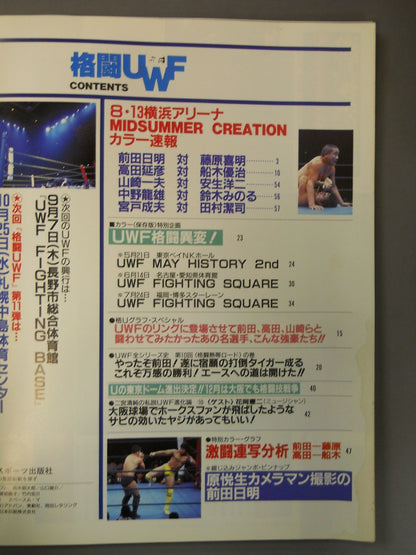 格闘UWF
CONTENTS
8・13横浜アリーナ
MIDSUMMER CREATION
カラー速報
前田日明 対 藤原喜明 3
高田延彦 対 船木優治 10
山崎一夫 対 安生洋二 54
中野龍雄 対 鈴木みのる 56
宮戸成夫 対 田村潔司 57
■カラー(保存版)特別企画
UWF格闘異変! 23
＊5月21日 東京ベイNKホール
UWF MAY HISTORY 2nd 24
＊6月14日 名古屋・愛知県体育館
UWF FIGHTING SQUARE 30
＊7月24日 福岡・博多スターレーン
UWF FIGHTING SQUARE 34
●格Uグラフ・スペシャル
UWFのリングに登場させて前田、高田、山崎らと
闘わせてみたかったあの名選手、こんな強豪たち!! 15
●UWF全シリーズ史 第10回〈格闘熱帯ロード〉の巻
やったぞ前田! 遂に宿願の打倒タイガー成る
これぞ万感の勝利! エースへの道は開けた!! 20
Uの東京ドーム進出決定!! 12月は大阪でも格闘技戦争 40
●二宮清純の私説UWF進化論 ⑩ 〈ゲスト〉花岡献二(ミュージシャン)
大阪球場でホークスファンが飛ばしたような
サビの効いたヤジがあってもいい! 42
●特別カラー・グラフ
激闘連写分析 前田—藤原
高田—船木 47
＊綴じ込みジャンボ・ピンナップ
原悦生カメラマン撮影の
前田日明
★次回のUWFの興行は…
9月7日(木)長野市総合体育館
"UWF FIGHTING BASE"
★次回『格闘UWF』第11弾は…
10月25日(水)札幌中島体育センター
スポーツ出版社